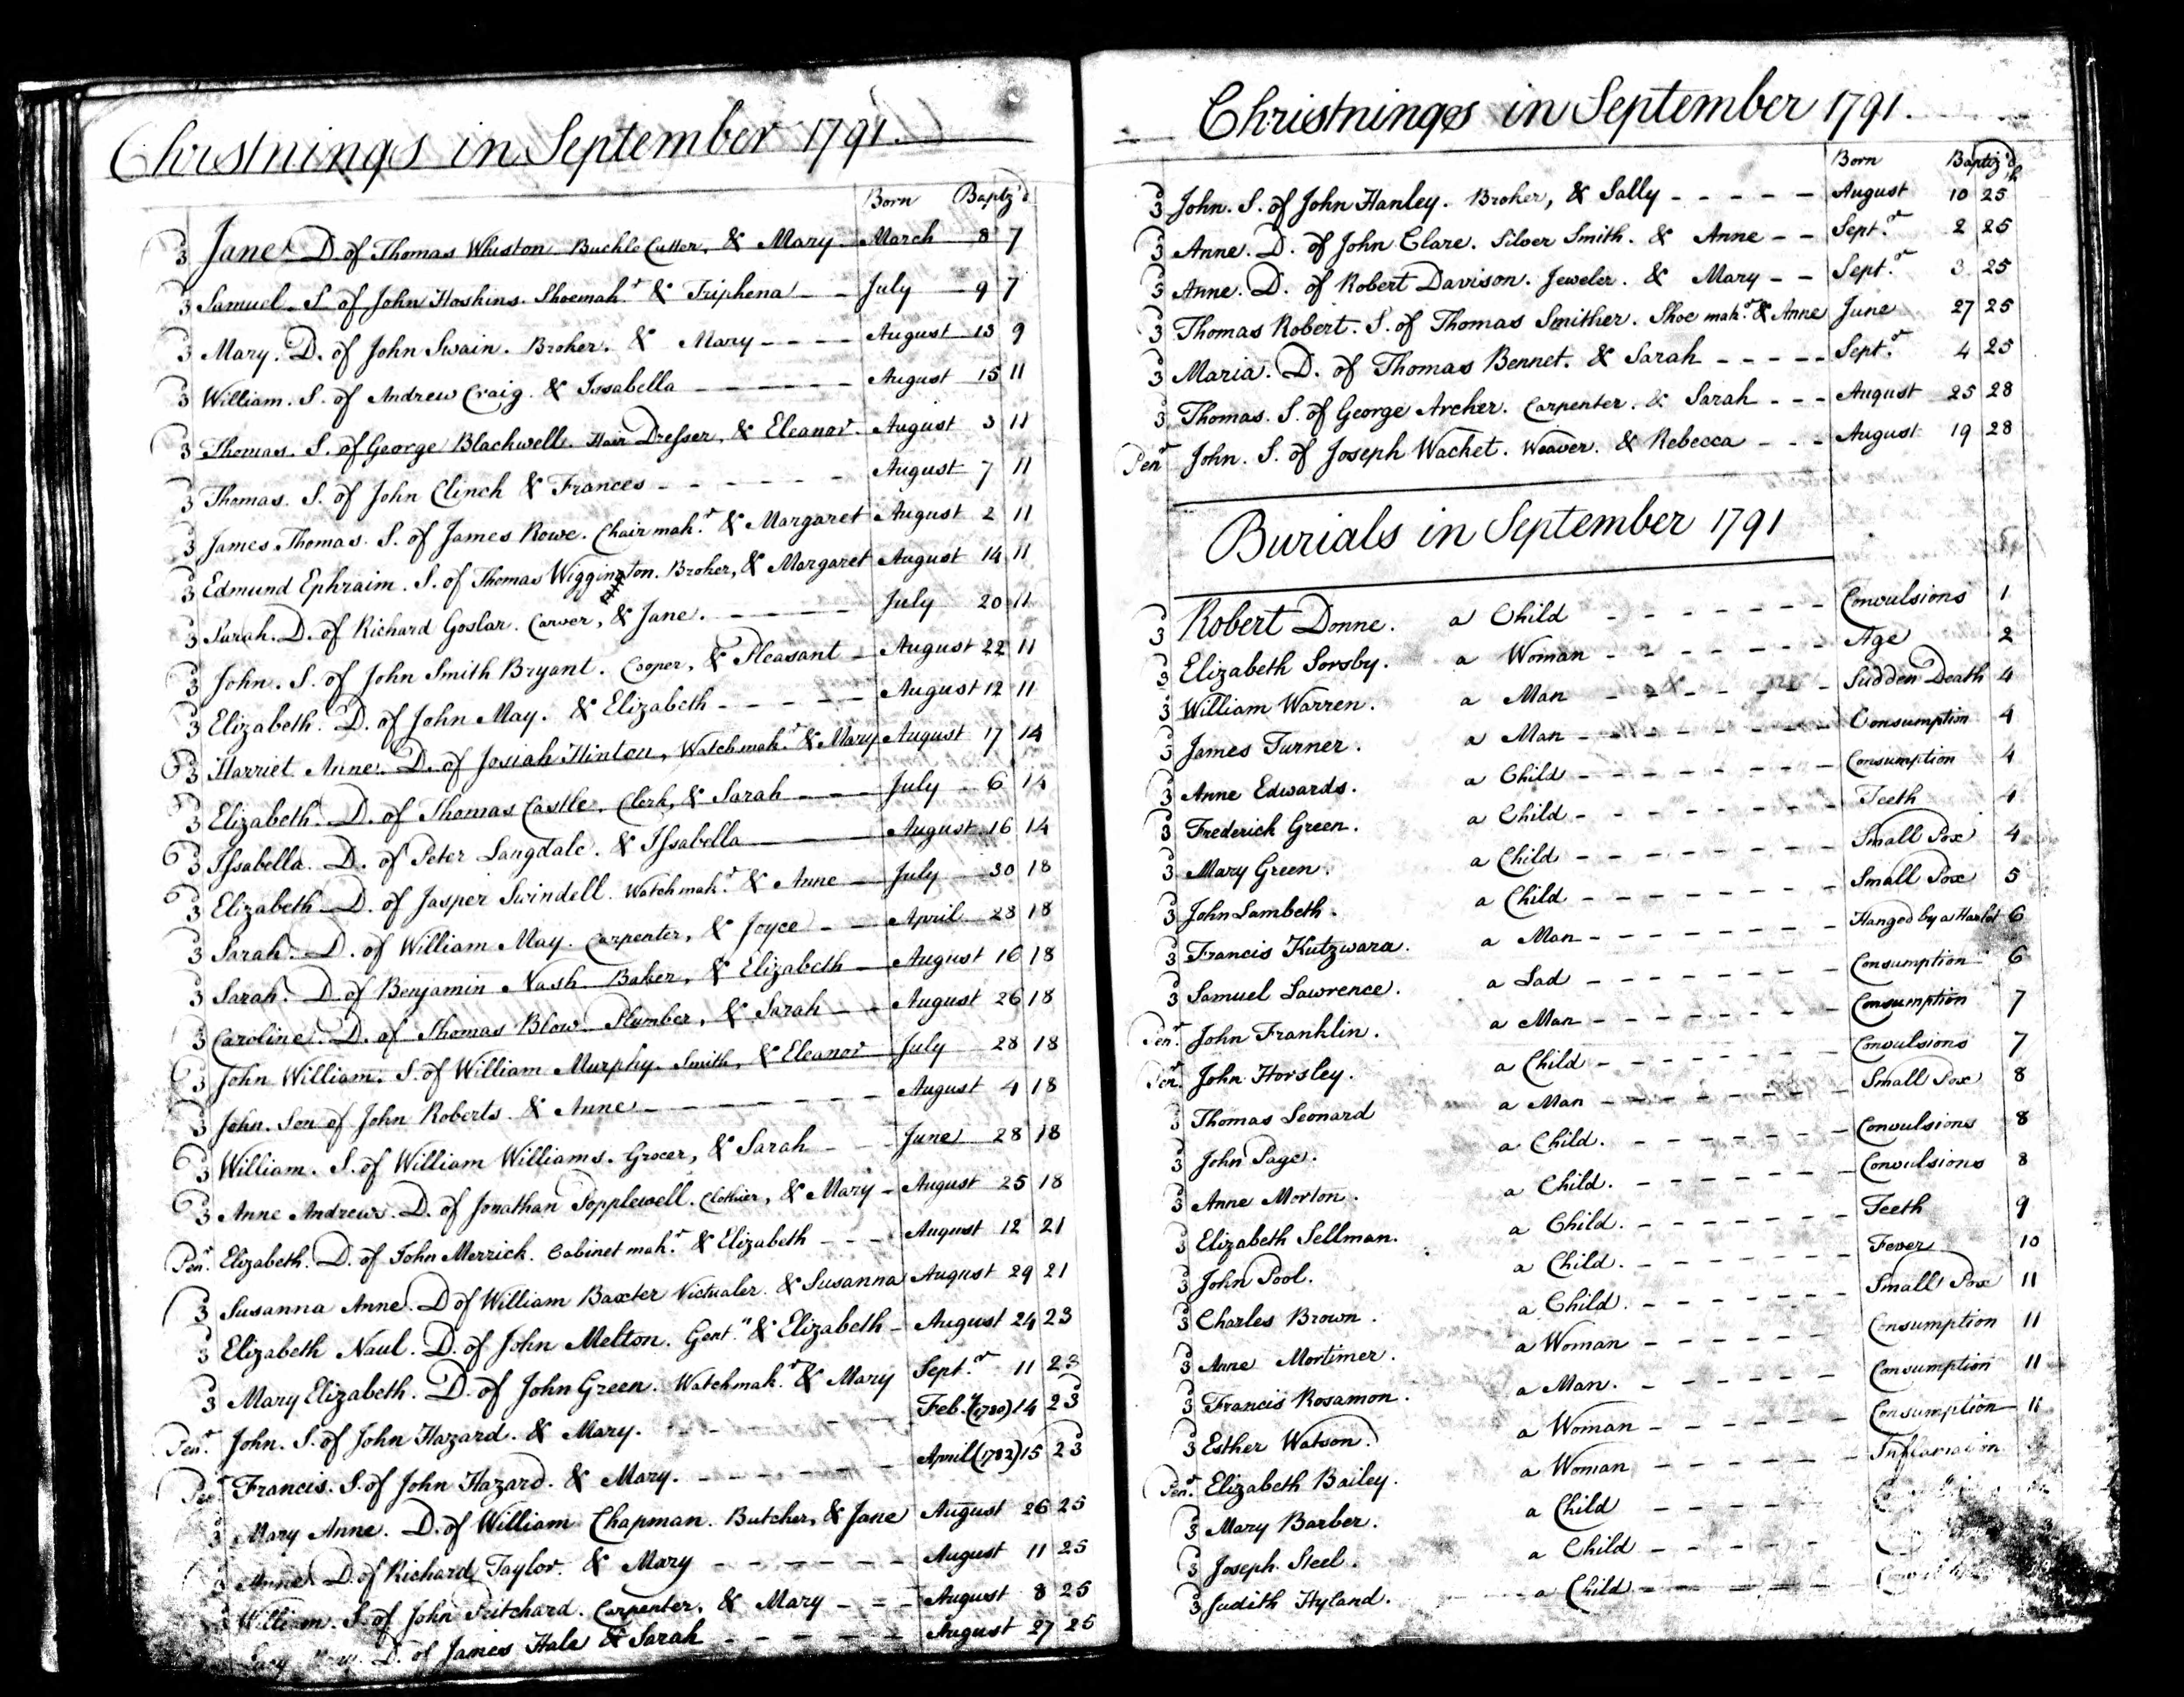 Christnings in September 1791.
Born Baptz'd
3d Jane. D. of Thomas Whiston. Buckle Cutter, & Mary March 8 7
3d Samuel. S. of John Hoskins. Shoemakr. & Triphena July 9 7
3d Mary. D. of John Swain. Broker. & Mary August 13 9
3d William. S. of Andrew Craig. & Issabella August 15 11
3d Thomas. S. of George Blackwell. Hair Dresser, & Eleanor. August 3 11
3d Thomas. S. of John Clinch & Frances August 7 11
3d James Thomas. S. of James Rowe. Chair makr. & Margaret August 2 11
3d Edmund Ephraim. S. of Thomas Wiggington. Broker, & Margaret August 14 11
3d Sarah. D. of Richard Goslar. Carver, & Jane. July 20 11
3d John. S. of John Smith Bryant. Cooper, & Pleasant August 22 11
3d Elizabeth. D. of John May. & Elizabeth August 12 11
3d Harriet Anne. D. of Josiah Hinton, Watchmakr. & Mary August 17 14
3d Elizabeth. D. of Thomas Castle. Clerk, & Sarah July 6 14
3d Issabella. D. of Peter Langdale. & Issabella August 16 14
3d Elizabeth. D. of Jasper Swindell. Watchmakr. & Anne July 30 18
3d Sarah. D. of William May. Carpenter, & Joyce April 28 18
3d Sarah. D. of Benjamin Nash. Baker, & Elizabeth August 16 18
3d Caroline. D. of Thomas Blow. Plumber, & Sarah August 26 18
3d John William. S. of William Murphy. Smith, & Eleanor July 28 18
3d John. Son of John Roberts. & Anne August 4 18
3d William. S. of William Williams. Grocer, & Sarah June 28 18
3d Anne Andrews. D. of Jonathan Popplewell. Clothier, & Mary August 25 18
Penr. Elizabeth. D. of John Merrick. Cabinet makr. & Elizabeth August 12 21
3d Susanna Anne. D of William Baxter Victualer. & Susanna August 29 21
3d Elizabeth Naul. D. of John Melton. Gent.n & Elizabeth August 24 23
3d Mary Elizabeth. D. of John Green. Watchmakr. & Mary Sept.r 11 23
Penr. John. S. of John Hazard. & Mary. Feb.y (1780) 14 23
Penr Francis. S. of John Hazard. & Mary. April (1782) 15 23
3d Mary Anne. D. of William Chapman. Butcher, & Jane August 26 25
3d Anne. D. of Richard Taylor. & Mary August 11 25
William. S. of John Pritchard. Carpenter, & Mary August 8 25
Mary. D. of James Hale & Sarah August 27 25
Christnings in September 1791.
Born Baptiz'd
3d John. S. of John Hanley. Broker, & Sally August 10 25th
3d Anne. D. of John Clare. Silver Smith. & Anne Sept.r 2 25
3d Anne. D. of Robert Davison. Jeweler. & Mary Sept.r 3 25
3d Thomas Robert. S. of Thomas Smither. Shoe makr. & Anne June 27 25
3d Maria. D. of Thomas Bennet. & Sarah Sept.r 4 25
3d Thomas. S. of George Archer. Carpenter. & Sarah August 25 28
Penr John. S. of Joseph Wachet. Weaver. & Rebecca August 19 28
Burials in September 1791
3d Robert Donne. a Child Convulsions 1
3d Elizabeth Sorsby. a Woman Age 2
3d William Warren. a Man Sudden Death 4
3d James Turner. a Man Consumption 4
3d Anne Edwards. a Child Consumption 4
3d Frederick Green. a Child Teeth 4
3d Mary Green. a Child Small Pox 4
3d John Lambeth. a Child Small Pox 5
3d Francis Kutzwara. a Man Hanged by a Harlot 6
3d Samuel Lawrence. a Lad Consumption 6
Penr. John Franklin. a Man Consumption 7
Penr. John Horsley. a Child Convulsions 7
3d Thomas Leonard a Man Small Pox 8
3d John Page. a Child. Convulsions 8
3d Anne Morton. a Child. Convulsions 8
3d Elizabeth Sellman. a Child. Teeth 9
3d John Pool. a Child. Fever 10
3d Charles Brown. a Child. Small Pox 11
3d Anne Mortimer. a Woman Consumption 11
3d Francis Rosamon. a Man. Consumption 11
3d Esther Watson. a Woman Consumption 11
Penr. Elizabeth Bailey. a Woman
3d Mary Barber. a Child
3d Joseph Steel. a Child
3d Judith Hyland. a Child